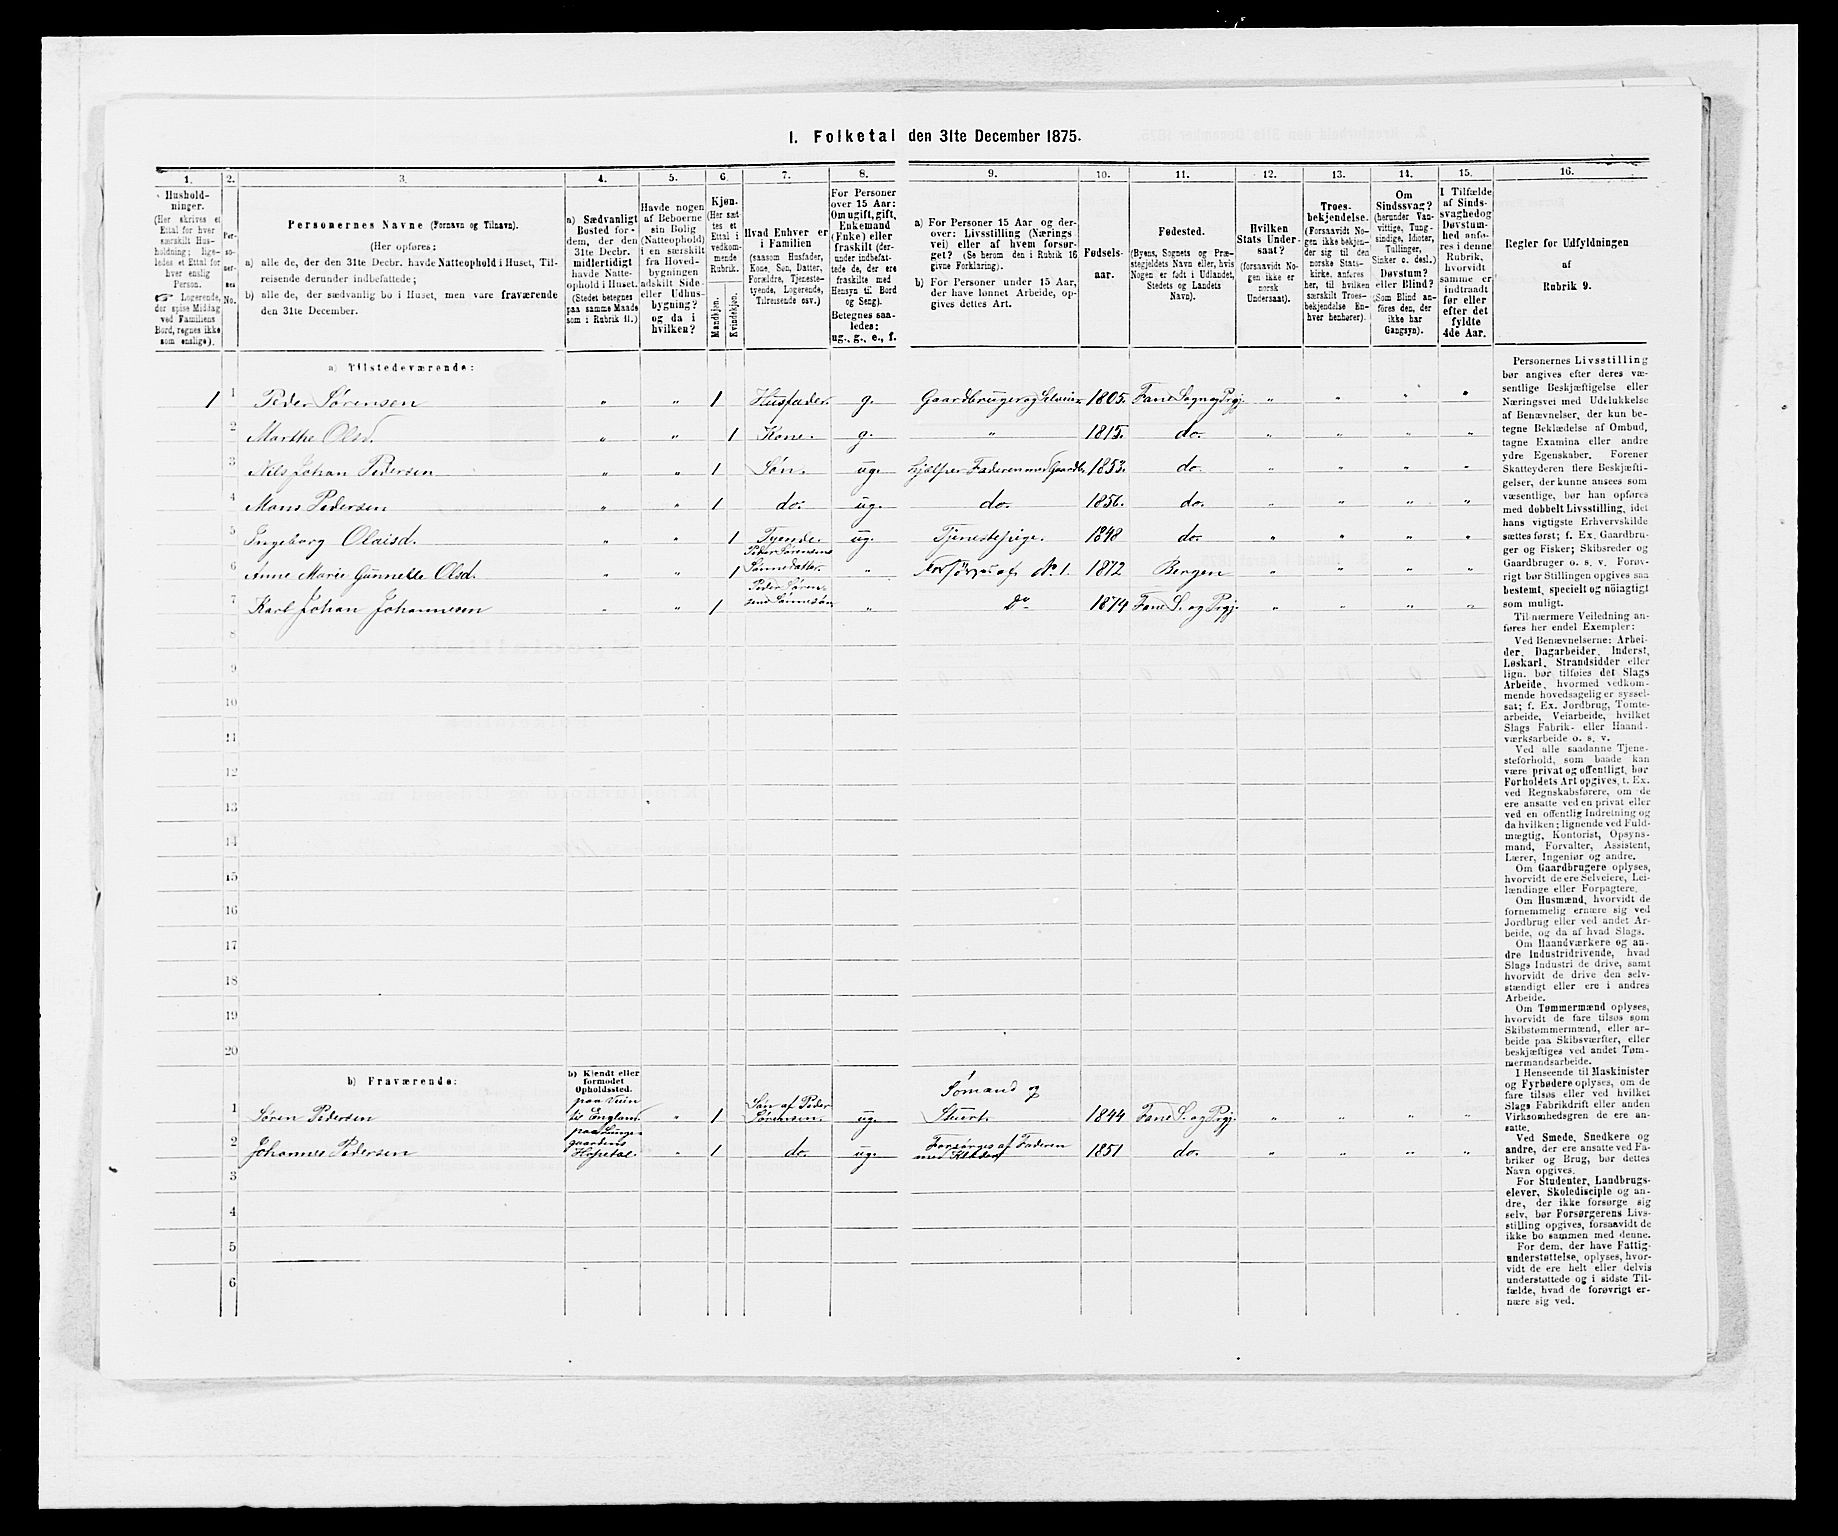 1. Folketal den 31te December 1875.
1. 2. 3. 4. 5. 6. 7. 8. 9. 10. 11. 12. 13. 14. 15. 16.
Husholdninger.
(Her skrives et
Ettal for hver
særskilt Husholdning;
ligeledes et Ettal for
hver enslig
Person.
☞ Logerende,
der spise Middag
ved Familiens
Bord, regnes ikke
som enslige).
Personernes
No.
Personernes Navne (Fornavn og Tilnavn).
(Her opføres:
a) alle de, der den 31te Decbr. havde Natteophold i Huset, Tilreisende derunder indbefattede;
b) alle de, der sædvanlig bo i Huset, men vare fraværende
den 31te December.
a) Sædvanligt
Bosted for dem, der den
31te Decbr.
midlertidigt
havde Natteophold i Huset.
(Stedet betegnes
paa samme Maade
som i Rubrik 11.)
Havde nogen
af Beboerne
sin Bolig
(Natteophold)
i en særskilt
fra Hovedbygningen
adskilt Side-
eller Udhusbygning?
og da i
hvilken?
Kjøn.
(Her sættes et
Ettal i
vedkommende
Rubrik.
Mandkjøn.
Kvindekjøn.
Hvad Enhver er
i Familien
(saasom Husfader,
Kone, Søn, Datter,
Forældre, Tjenestetyende, Logerende,
Tilreisende osv.)
For Personer
over 15 Aar:
Om ugift, gift,
Enkemand
(Enke) eller
fraskilt (derunder indbefattede de, der ere
fraskilte med
Hensyn til Bord
og Seng).
Betegnes saaledes:
ug., g., e., f.
a) For Personer 15 Aar og derover: Livsstilling (Næringsvei) eller af hvem forsørget? (Se herom den i Rubrik 16
givne Forklaring).
b) For Personer under 15 Aar,
der have lønnet Arbeide, opgives dettes Art.
Fødselsaar.
Fødested.
(Byens, Sognets og Præstegjeldets Navn eller, hvis
Nogen er født i Udlandet,
Stedets og Landets
Navn).
Hvilken
Stats Undersaat?
(forsaavidt Nogen ikke er
norsk
Undersaat).
Troesbekjendelse.
(Forsaavidt Nogen ikke bekjender sig til den
norske Statskirke, anføres
her, til hvilken
særskilt Troesbekjendelse Enhver henhører).
Om
Sindssvag?
(herunder Vanvittige, Tungsindige, Idioter,
Tullinger,
Sinker o. desl.)
Døvstum?
eller Blind?
(Som Blind anføres den, der
ikke har
Gangsyn).
I Tilfælde
af Sindssvaghed og
Døvstumhed anføres i denne
Rubrik,
hvorvidt
samme er
indtraadt
før eller
efter det
fyldte
4de Aar.
Regler for Udfyldningen
af
Rubrik 9.
a) Tilstedeværende:
1 1 Peder Sørensen „ „ 1 Husfader. g. Gaardbruger og Selveier 1805. Fane Sogn og Prgj. „ „ „ „
2 Marthe Olsd. „ „ 1 Kone. g. „ 1815. do. „ „ „ „
3 Nils Johan Pedersen „ „ 1 Søn. ug. Hjælper Faderen med Gaardbr. 1853. do. „ „ „ „
4 Mons Pedersen „ „ 1 do. ug. do. 1856. do. „ „ „ „
5 Ingeborg Olaisd. „ „ 1 Tyende. ug. Tjenestepige. 1848 do. „ „ „ „
6 Anne Marie Gunnelle Olsd. „ „ 1 Peder Sørensens Sønnedatter. „ Forsørges af No 1. 1872 Bergen „ „ „ „
7 Karl Johan Johannesen „ „ 1 Peder Sørensens Sønnesøn „ Do 1874 Fane S. og Prgj. „ „ „ „
8
9
10
11
12
13
14
15
16
17
18
19
20
b) Fraværende:
b) Kjendt eller
formodet
Opholdssted.
1 Søren Pedersen paa Veien til England. „ 1 Søn af Peder Sørensen. ug. Sømand og Stuert. 1844 Fane S. og Prgj. „ „ „ „
2 Johannes Pedersen paa Lungegaardens Hospital. „ 1 do. ug. Forsørges af Faderen med Klæder 1851 do. „ „ „ „
3
4
5
6
Personernes Livsstilling
bør angives efter deres væsentlige Beskjæftigelse eller
Næringsvei med Udelukkelse
af Benævnelser, der kun betegne Beklædelse af Ombud,
tagne Examina eller andre
ydre Egenskaber. Forener
Skatteyderen flere Beskjæftigelser, der kunne ansees som
væsentlige, bør han opføres
med dobbelt Livsstilling, idet
hans vigtigste Erhvervskilde
sættes først; f. Ex. Gaardbruger og Fisker; Skibsreder og
Gaardbruger o. s. v. Forøvrigt bør Stillingen opgives saa
bestemt, specielt og nöiagtigt
som muligt.
Til nærmere Veiledning anføres her endel Exempler:
Ved Benævnelserne: Arbeider, Dagarbeider, Inderst,
Løskarl, Strandsidder eller
lign. bør tilføies det Slags
Arbeide, hvormed vedkommende hovedsagelig er sysselsat; f. Ex. Jordbrug, Tomtearbeide, Veiarbeide, hvilket
Slags Fabrik- eller Haandværksarbeide o. s. v.
Ved alle saadanne Tjenesteforhold, som baade kan
være privat og offentligt, bør
Forholdets Art opgives, t. Ex.
ved Regnskabsførere, om de
ere ansatte ved en privat eller
ved en offentlig Indretning og
da hvilken; lignende ved Fuldmægtig, Kontorist, Opsynsmand, Forvalter, Assistent,
Lærer, Ingeniør og andre.
Om Gaardbrugere oplyses,
hvorvidt de ere Selveiere, Leilændinge eller Forpagtere.
Om Husmænd, hvorvidt de
fornemmelig ernære sig ved
Jordbrug eller ved andet Arbeide, og da af hvad Slags.
Om Haandværkere og andre Industridrivende, hvad
Slags Industri de drive, samt
hvorvidt de drive den selvstændigt eller ere i andres
Arbeide.
Om Tømmermænd oplyses,
hvorvidt de fare tilsøs som
Skibstømmermænd, eller arbeide paa Skibsværfter, eller
beskjæftiges ved andet Tømmermandsarbeide.
I Henseende til Maskinister
og Fyrbødere oplyses, om de
fare tilsøs eller ved hvilket
Slags Fabrikdrift eller anden
Virksomhedsgren de ere ansatte.
Ved Smede, Snedkere og
andre, der ere ansatte ved Fabriker og Brug, bør dettes
Navn opgives.
For Studenter, Landbrugselever, Skoledisciple og andre, der ikke forsørge sig
selv, bør Forsørgerens Livsstilling opgives, forsaavidt de
ikke bo sammen med denne.
For dem, der have Fattigunderstøttelse, oplyses, hvorvidt de ere helt eller delvis
understøttede og i sidste Tilfælde, hvad de forøvrigt ernære sig ved.